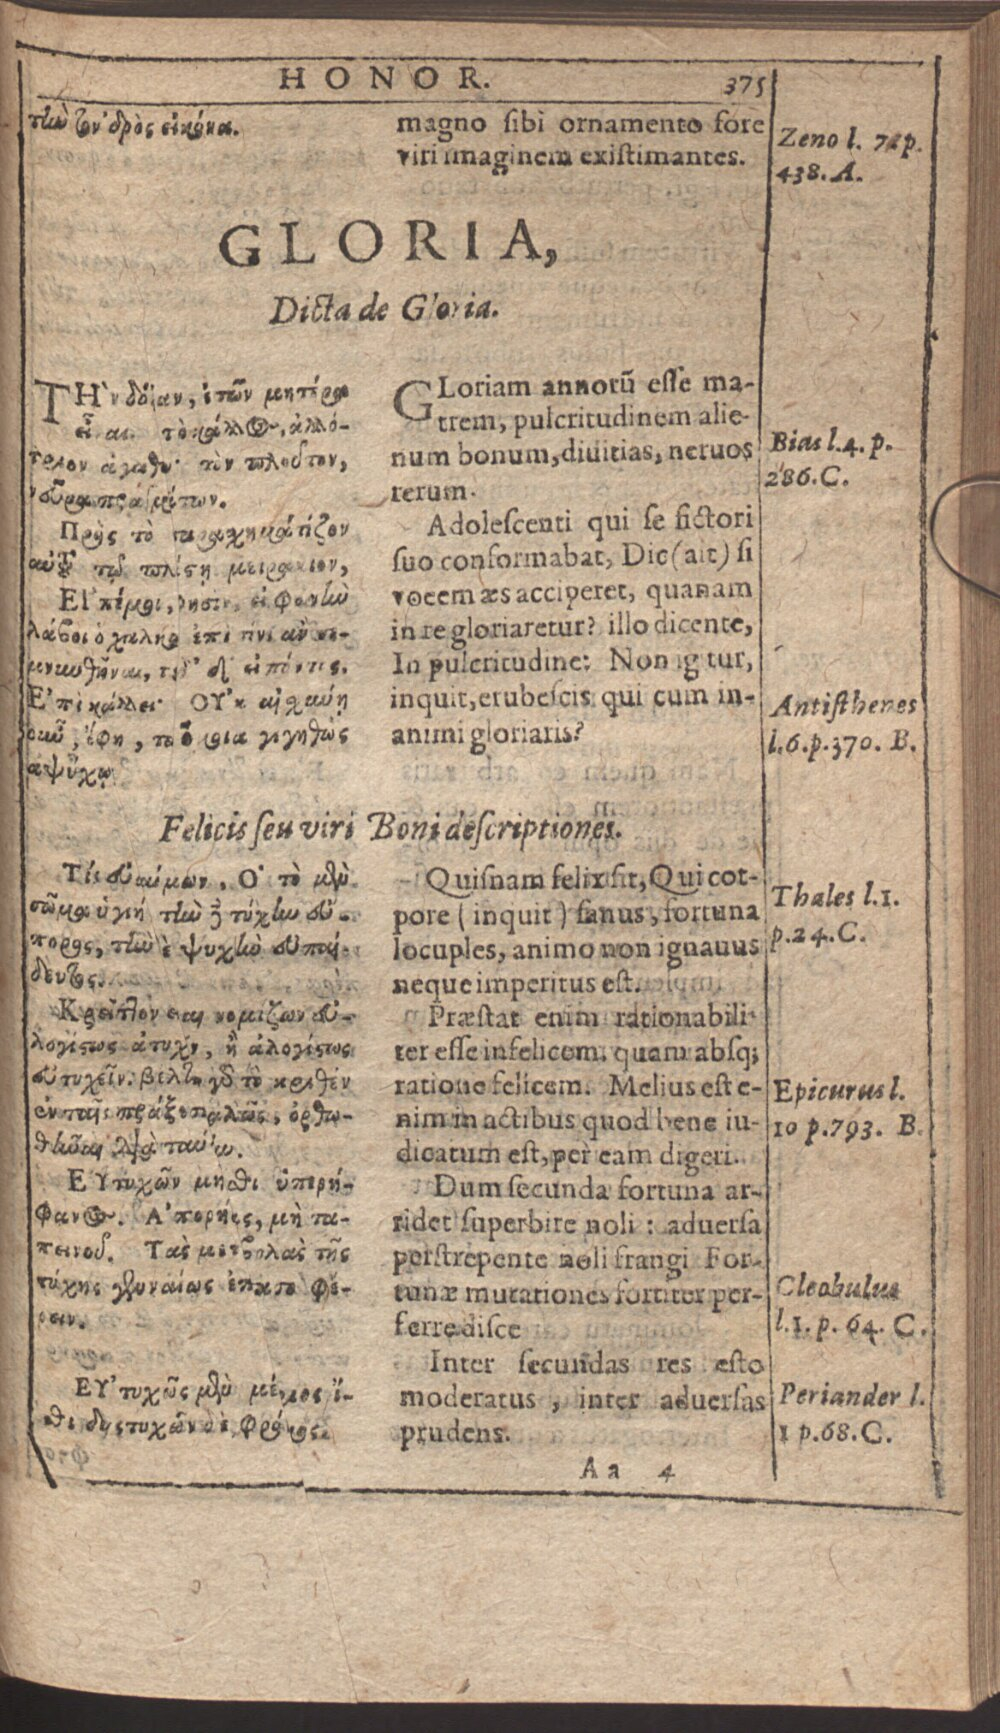 HONOR. 375
τὴν τἀνδρὸς εἰκόνα.
magno sibi ornamento fore
viri imaginem existimantes.
Zeno l. 7 p.
438. A.
GLORIA,
Dicta de Gloria.
ΤῊν δόξαν, ἐτῶν μητέρα
εἶναι. τὸ κάλλος, ἀλλό-
τριον ἀγαθόν· τὸν πλοῦτον,
νεῦρα πραγμάτων.
Πρὸς τὸ παραχηματίζον
αὑτὸ τῷ πλάστῃ μειράκιον,
Εἰπέ μοι, φησὶν, εἰ φωνὴν
λάβοι ὁ χαλκὸς ἐπὶ τίνι ἂν σε-
μνυνθῆναι, τοῦ δ' εἰπόντος.
Ε'πὶ κάλλει· ΟΥ'κ αἰσχύνῃ
οὖν, ἔφη, τὰ ὅμοια γεγηθὼς
ἀψύχῳ
GLoriam annorũ esse ma-
trem, pulcritudinem alie-
num bonum, diuitias, neruos
rerum.
Adolescenti qui se fictori
suo conformabat, Dic (ait) si
vocem æs acciperet, quanam
in re gloriaretur? illo dicente,
In pulcritudine: Non igitur,
inquit, erubescis qui cum in-
animi gloriaris?
Bias l.4. p.
286. C.
Antisthenes
l.6. p.370. B.
Felicis seu viri Boni descriptiones.
Τίς εὐδαίμων, Ο' τὸ μὲν
σῶμα ὑγιὴ τὴν δὲ τύχην εὔ-
πορος, τὴν δὲ ψυχὴν εὐπαί-
δευτος.
Κρεῖττον εἶναι νομίζων εὐ-
λογίστως ἀτυχεῖν, ἢ ἀλογίστως
εὐτυχεῖν. βέλτιον γὰρ τὸ κριθὲν
ἐν ταῖς πράξεσι καλῶς, ὀρθω-
θῆναι διὰ ταύτην.
Ευ'τυχῶν μὴ ἴσθι ὑπερή-
φανος. Α'πορήσας, μὴ τα-
πεινοῦ. Τὰς μεταβολὰς τῆς
τύχης γενναίως ἐπίστω φέ-
ρειν.
ΕΥ'τυχῶς μὲν μέτριος ἴ-
σθι δυστυχῶν δὲ φρόνιμος.
Quisnam felix sit, Qui cor-
pore (inquit) sanus, fortuna
locuples, animo non ignauus
neque imperitus est.
Præstat enim rationabili-
ter esse infelicem, quam absq;
ratione felicem. Melius est e-
nim in actibus quod bene iu-
dicatum est, per eam digeri.
Dum secunda fortuna ar-
ridet superbire noli: aduersa
perstrepente noli frangi For-
tunæ mutationes fortiter per-
ferre disce
Inter secundas res esto
moderatus, inter aduersas
prudens.
Thales l.1.
p.24. C.
Epicurus l.
10 p.793. B.
Cleobulus
l.1. p. 64. C.
Periander l.
1 p.68. C.
Aa 4